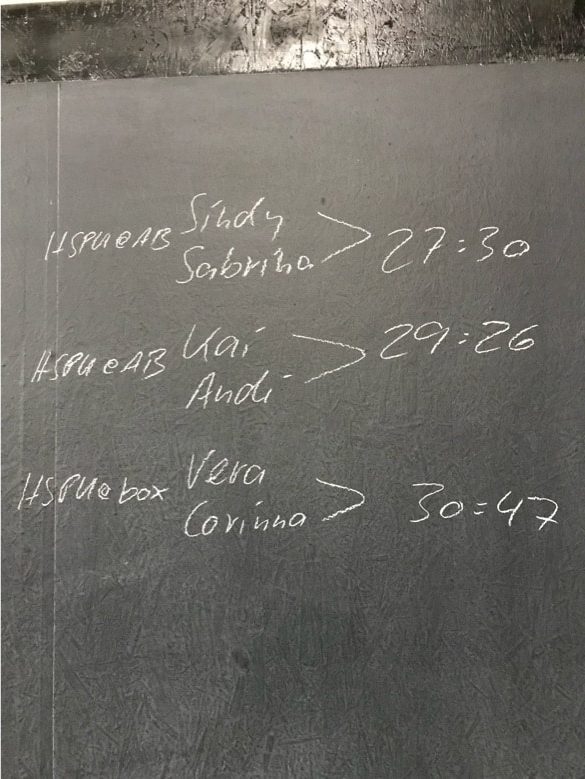 HSPU@AB Sindy
Sabrina > 27:30
HSPU@AB Kai
Andi > 29:26
HSPU@box Vera
Corinna > 30:47